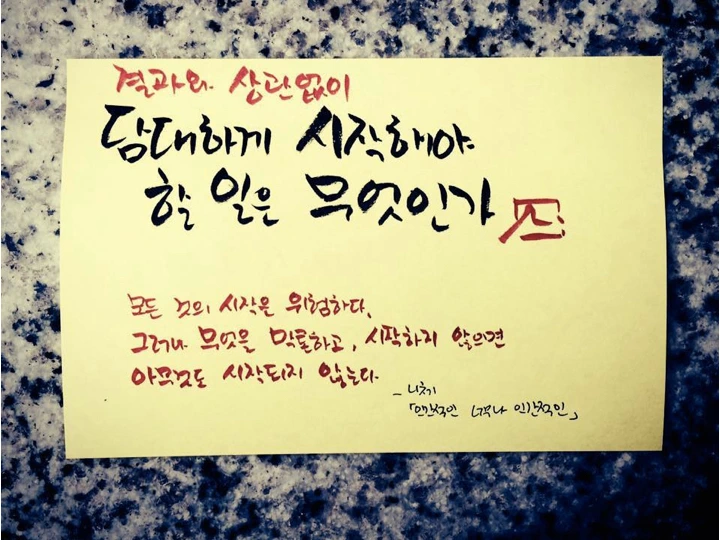 결과와 상관없이
담대하게 시작해야
할 일은 무엇인가
모든 것의 시작은 위험하다.
그러나 무엇을 막론하고, 시작하지 않으면
아무것도 시작되지 않는다.
- 니체
「인간적인 너무나 인간적인」